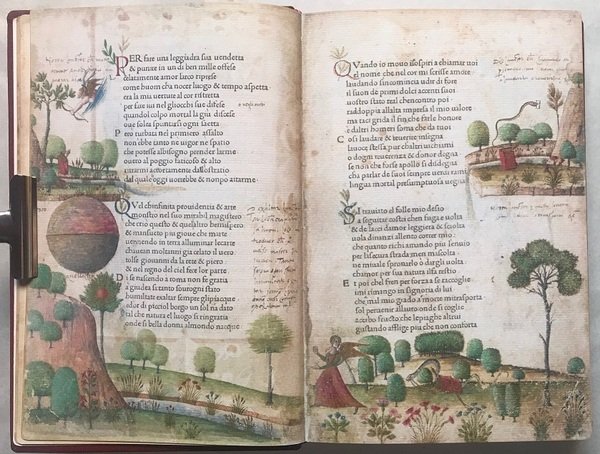 PER fare una leggiadra sua uendetta
& punire in un di ben mille offese
celatamente amor larco riprese
come huom cha nocer luogo & tempo aspetta
era la mia uertute al cor ristretta
per far iui nel gliocchi sue difese
quando colpo mortal la giu discese
oue solea spuntarsi ogni saetta
Pero turbata nel primiero assalto
non ebbe tanto ne uigor ne spatio
che potesse albisogno prender larme
ouero al poggio faticoso & alto
ritrarmi accortamente dallostratio
dal quale oggi uorrebbe & non po aitarme
QVel chinfinita prouidentia & arte
monstro nel suo mirabil magistero
che crio questo & quelaltro hemispero
& mansueto piu gioue che marte
uenendo in terra alluminar lecarte
chauean moltanni gia celato il uero
tolse giouanni da la rete & piero
& nel regno del ciel fece lor parte
Di se nascendo a roma non fe gratia
a giudea si tanto sourogni stato
humilitate exaltar sempre gli piacque
& hor di picciol borgo un sol na dato
tal che natura el luogo si ringratia
onde si bella donna almondo nacque
QVando io mouo isospiri a chiamar uoi
el nome che nel cor mi scrisse amore
laudando sincomincia udir di fore
il suon de primi dolci accenti suoi
uostro stato real chencontro poi
raddoppia allalta impresa il mio ualore
ma taci grida il fin che farle honore
e daltri homeri soma che da tuoi
Cosi laudare & reuerire insegna
la uoce stessa pur chaltri ui chiami
o dogni reuerenza & donor degna
se non che forse apollo si disdegna
cha parlar de suoi sempre uerdi rami
lingua mortal presumptuosa uegna
SI trauiato el folle mio desio
a seguitar costei chen fuga e uolta
& de lacci damor leggiera & sciolta
uola dinanzi allento correr mio
che quanto richiamando piu lenuio
per la secura strada men mascolta
ne miuale spronarlo o dargli uolta
chamor per sua natura il fa restio
E poi chel fren per forza a se raccoglie
imi rimango in signoria di lui
che mal mio grado a morte mi trasporta
sol per uenir allauro onde si coglie
acerbo fructo che lepiaghe altrui
gustando afflige piu che non conforta